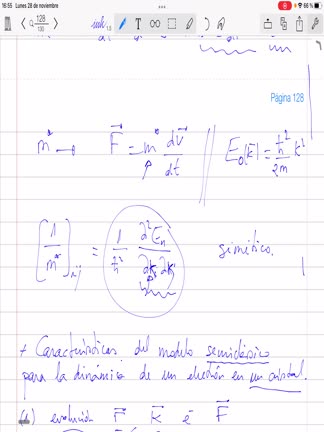 16:55 Lunes 28 de noviembre
66 %
128
130
1.8
Página 128
m* → F⃗ = m* dv⃗/dt // E₀(k⃗) = ħ²/2m k²
[1/m*]ᵢⱼ = 1/ħ² ∂²Eₙ/∂kᵢ∂kⱼ simétrico.
+ Características del modelo semiclásico
para la dinámica de un electrón en un cristal.
evolución r⃗ k⃗ è F⃗